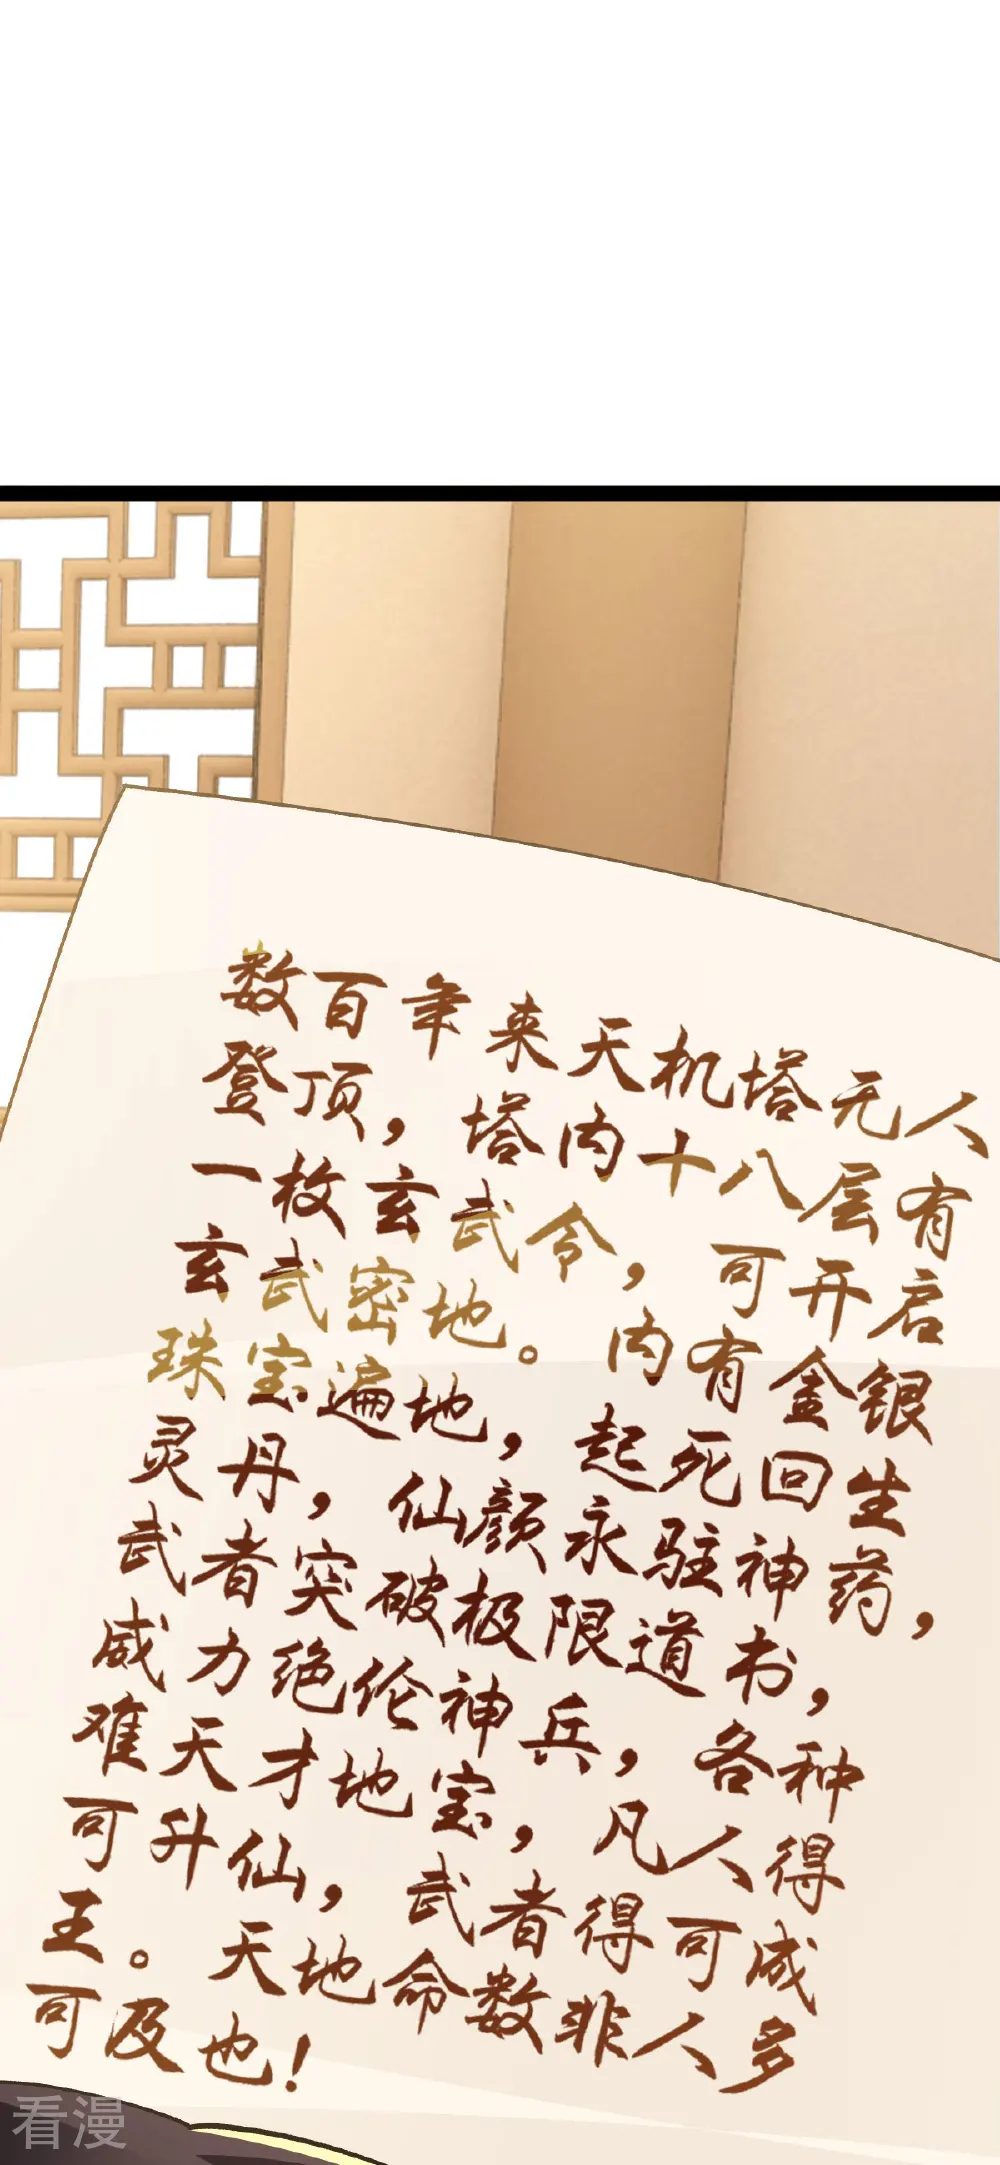 数百年来天机塔无人
登顶，塔内十八层有
一枚玄武令，可开启
玄武密地。内有金银
珠宝遍地，起死回生
灵丹，仙颜永驻神药，
武者突破极限道书，
威力绝伦神兵，各种
难天才地宝，凡人得
可升仙，武者得可成
王。天地命数非人多
可及也！
看漫